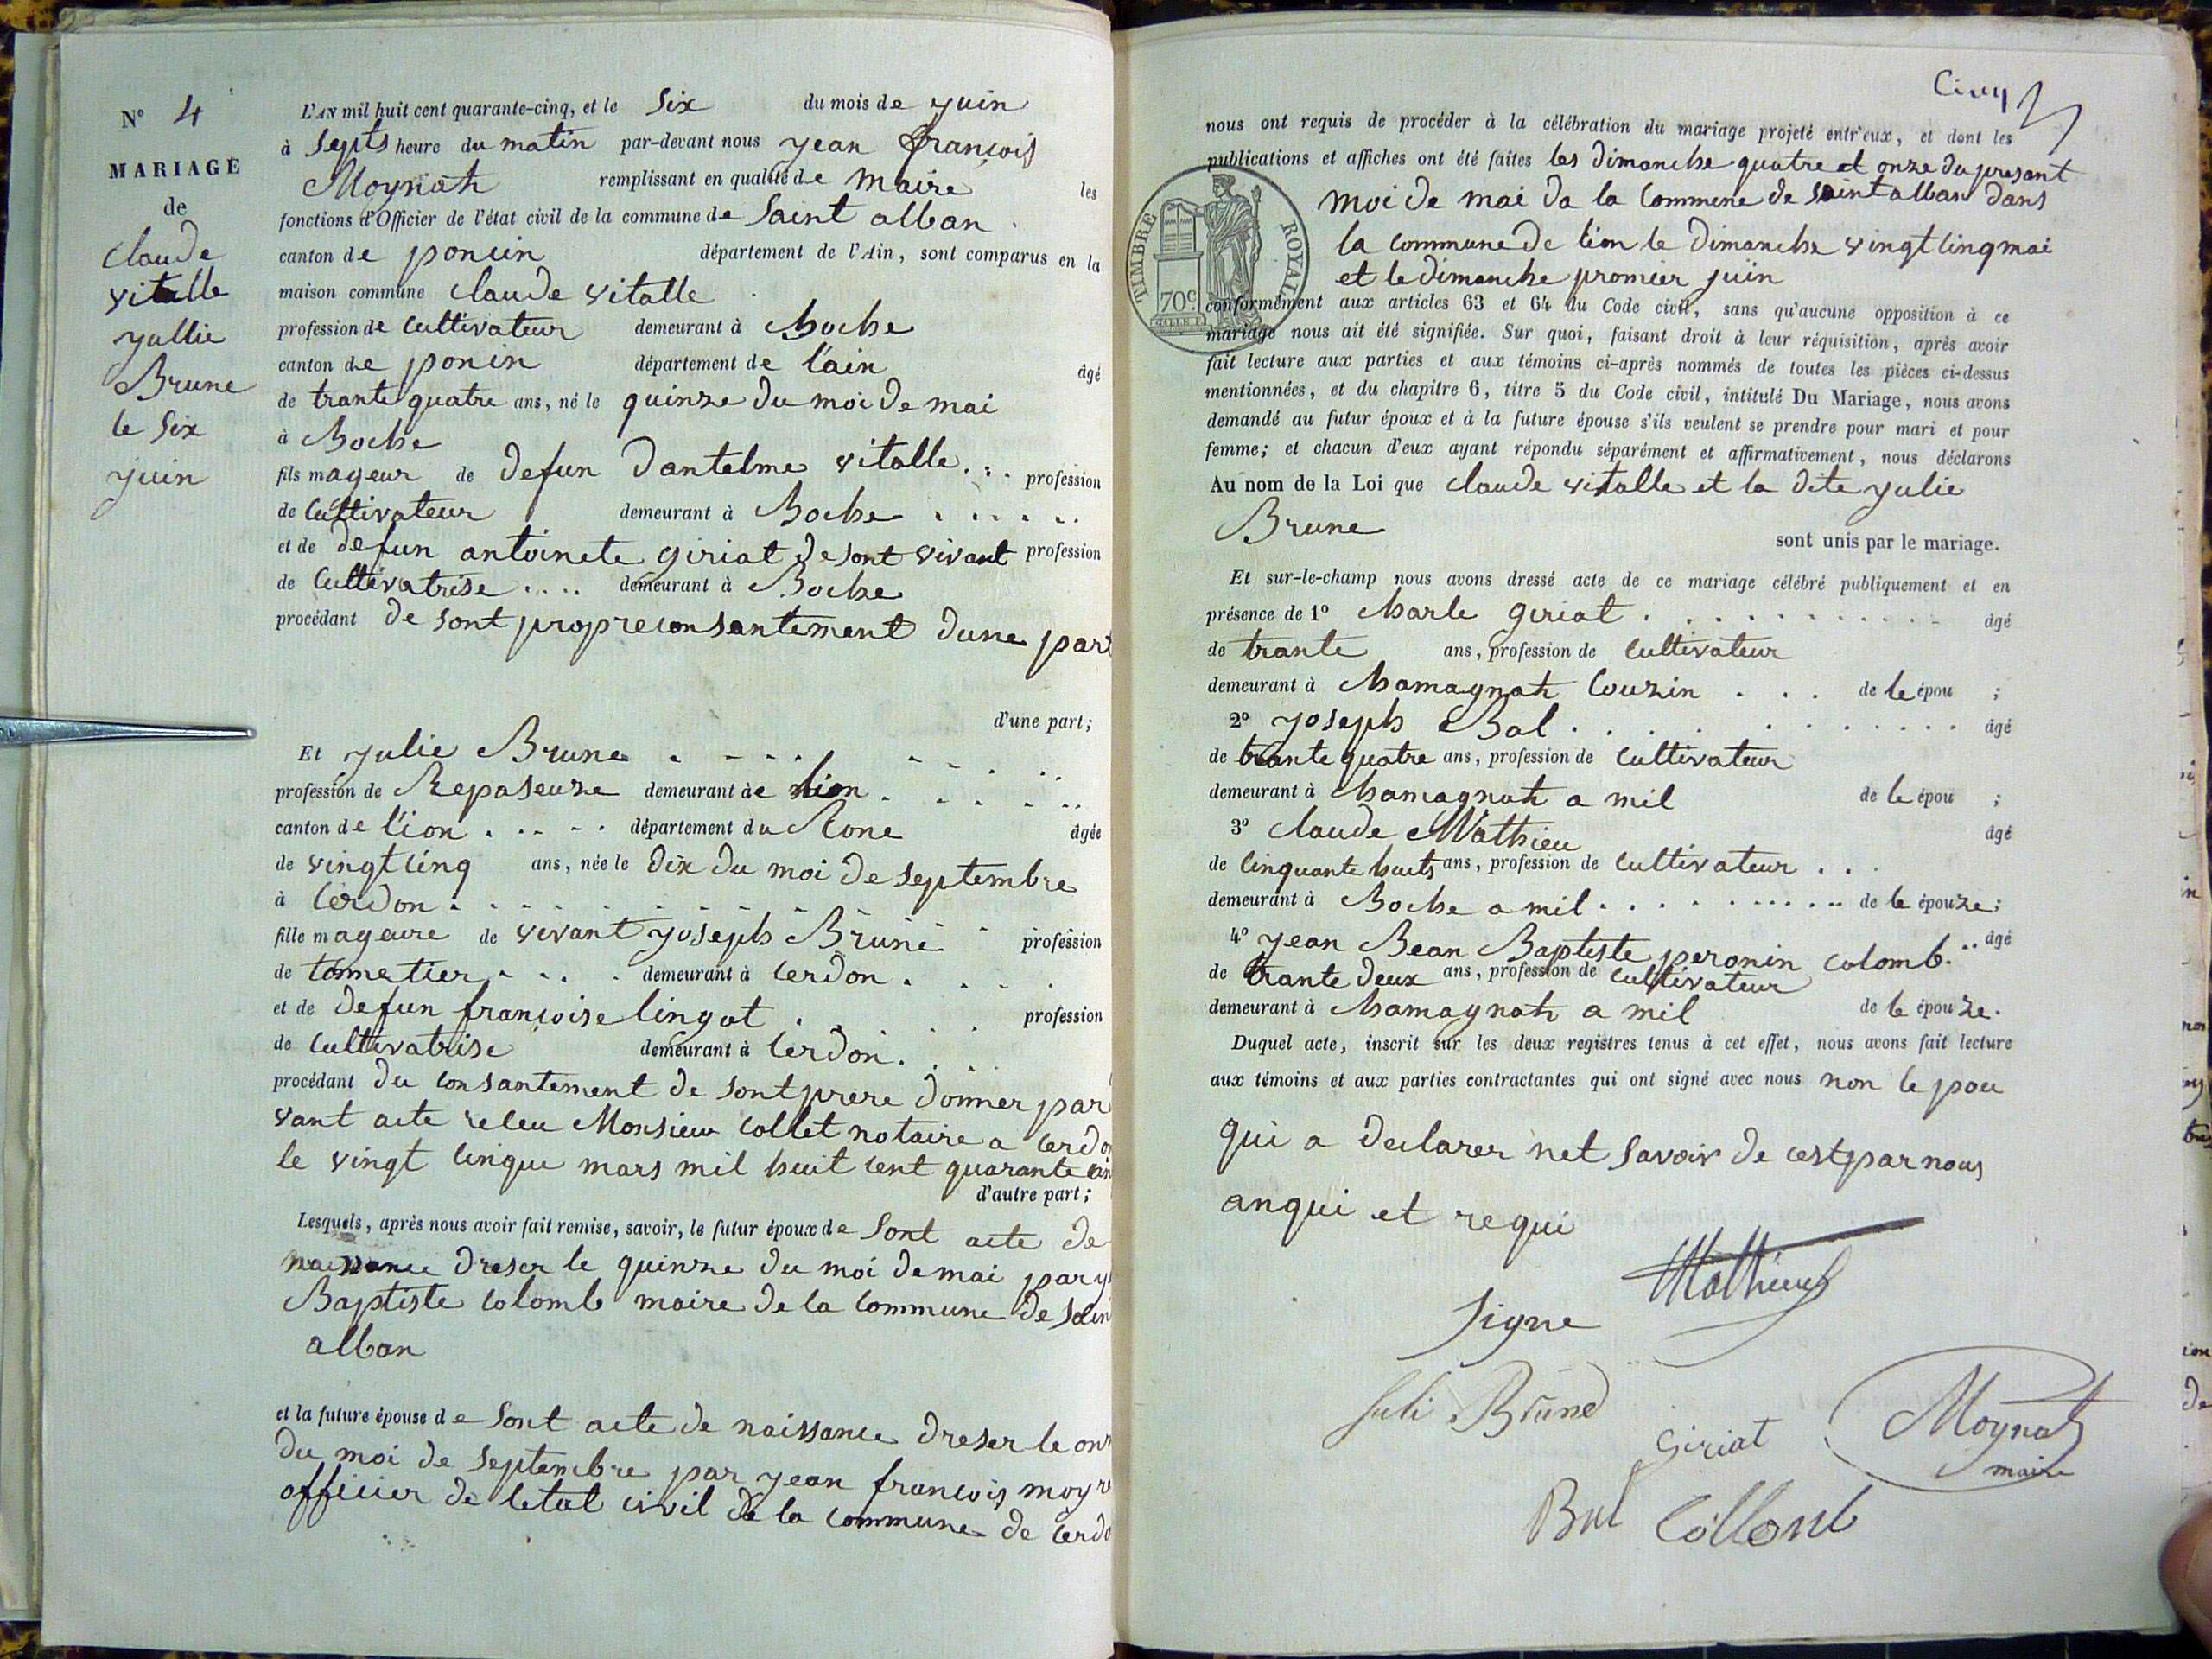 N° 4
MARIAGE
de
Claude
vitalle
yullie
Brune
le Six
juin
L'AN mil huit cent quarante-cinq, et le Six du mois de juin
à Septs heure du matin par-devant nous yean françois
Moynat remplissant en qualité de maire les
fonctions d'Officier de l'état civil de la commune de Saint alban
canton de poncin département de l'Ain, sont comparus en la
maison commune Claude vitalle
profession de Cultivateur demeurant à Boche
canton de ponin département de l'ain âgé
de trante quatre ans, né le quinze du moi de mai
à Boche
fils mageur de defun Dantelme vitalle profession
de Cultivateur demeurant à Boche
et de defun antoinete giriat de sont vivant profession
de Cultivatrise demeurant à Boche
procédant de sont propre consantement dune part
d'une part;
Et yulie Brune
profession de Repaseuze demeurant à lion
canton de lion département du Rone âgée
de vingt cinq ans, née le dix du moi de septembre
à Cerdon
fille mageure de vivant yoseph Brune profession
de tonnetier demeurant à Cerdon
et de defun françoise lingot profession
de Cultivatrise demeurant à Cerdon
procédant du consantement de sont prere donner par
vant acte releu Monsieur Collet notaire a Cerdon
le vingt cinque mars mil huit cent quarante cin
d'autre part;
Lesquels, après nous avoir fait remise, savoir, le futur époux de Sont acte de
naissance dreser le quinze du moi de mai par y
Baptiste Colomb maire de la Commune de Sain
alban
et la future épouse de Sont acte de naissance dreser le on
du moi de septembre par yean françois moyn
officier de letat civil de la Commune de Cerdo
Cinq
nous ont requis de procéder à la célébration du mariage projeté entr'eux, et dont les
publications et affiches ont été faites les dimanche quatre et onze du presant
moi de mai da la Commune de Saint alban dans
la Commune de lion le dimanche vingt cinq mai
et le dimanche promier juin
TIMBRE ROYAL
70c
conformément aux articles 63 et 64 du Code civil, sans qu'aucune opposition à ce
mariage nous ait été signifiée. Sur quoi, faisant droit à leur réquisition, après avoir
fait lecture aux parties et aux témoins ci-après nommés de toutes les pièces ci-dessus
mentionnées, et du chapitre 6, titre 5 du Code civil, intitulé Du Mariage, nous avons
demandé au futur époux et à la future épouse s'ils veulent se prendre pour mari et pour
femme; et chacun d'eux ayant répondu séparément et affirmativement, nous déclarons
Au nom de la Loi que Claude vitalle et la dite yulie
Brune
sont unis par le mariage.
Et sur-le-champ nous avons dressé acte de ce mariage célébré publiquement et en
présence de 1° Charle giriat âgé
de trante ans, profession de Cultivateur
demeurant à Chamagnat Couzin de le épou ;
2° yoseph Bal âgé
de trante quatre ans, profession de Cultivateur
demeurant à Chamagnat a mil de le épou ;
3° Claude Mathieu âgé
de Cinquante huits ans, profession de Cultivateur
demeurant à Boche a mil de le épouze;
4° yean Bean Baptiste peronin Colomb âgé
de trante deux ans, profession de Cultivateur
demeurant à Chamagnat a mil de le épouze.
Duquel acte, inscrit sur les deux registres tenus à cet effet, nous avons fait lecture
aux témoins et aux parties contractantes qui ont signé avec nous non le pou
qui a declarer net savoir de cest par nous
anqui et requi
Signe
Mathieu
Juli Brune
Giriat
Moynat
maire
Bal
Collomb